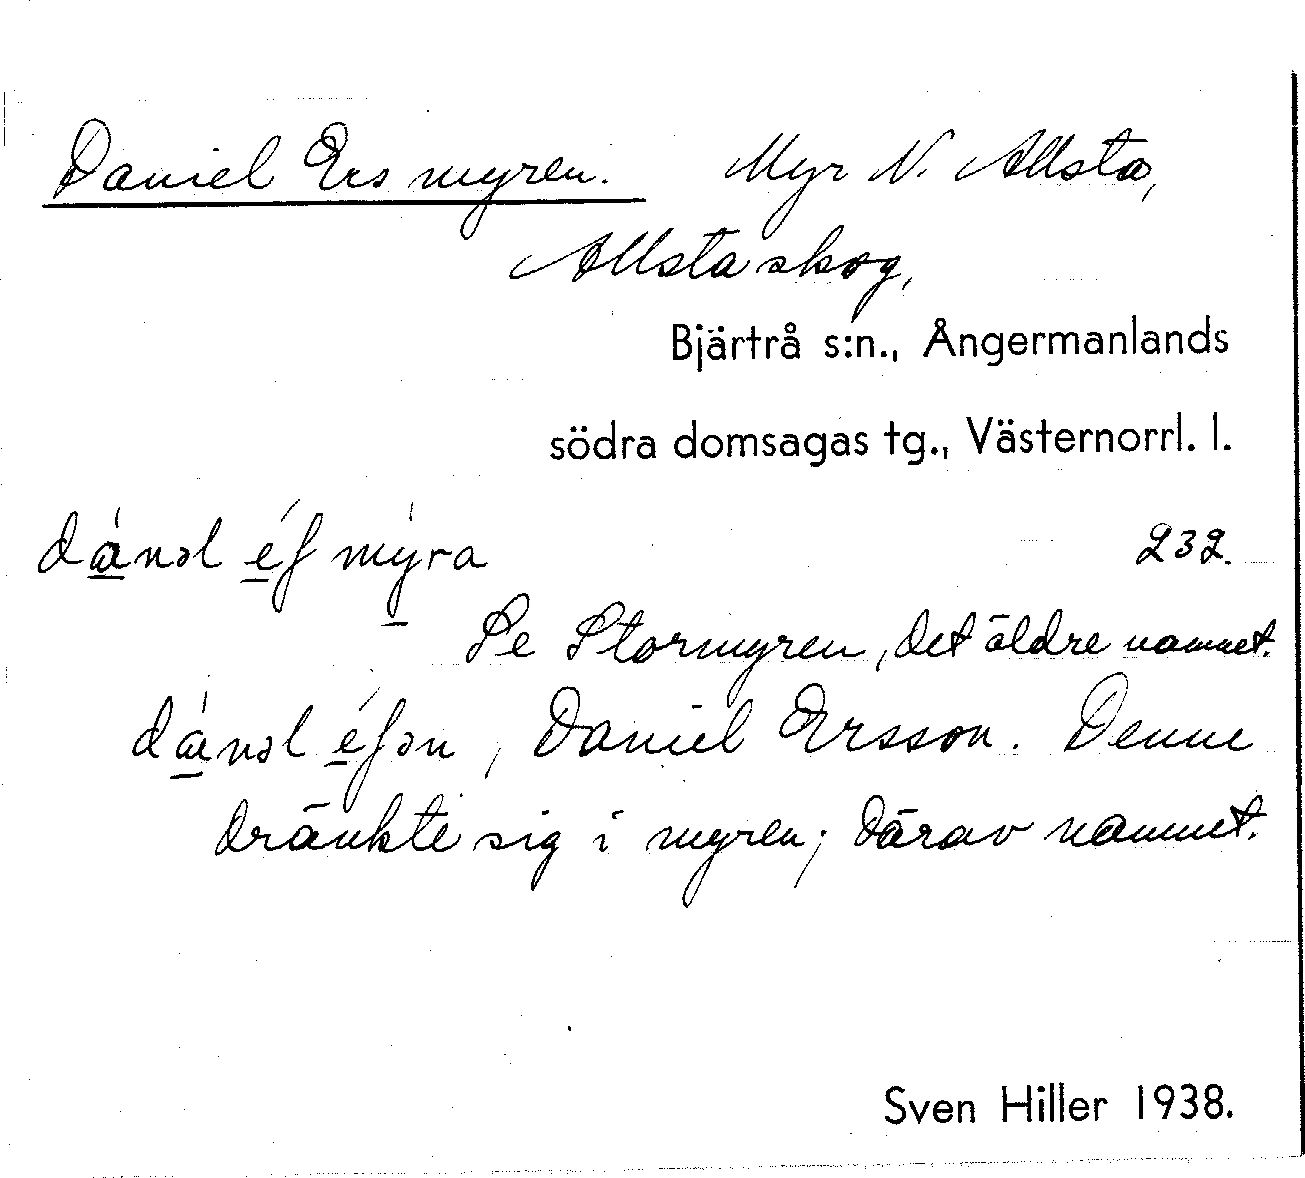 Daniel Ers myren. Myr N. Allsta,
Allsta skog,
Bjärtrå s:n., Ångermanlands
södra domsagas tg., Västernorrl. l.
dánəl éʃ mýra 232.
Se Stormyren, det äldre namnet.
dánəl éʃən, Daniel Ersson. Denne
dränkte sig i myren; därav namnet.
Sven Hiller 1938.